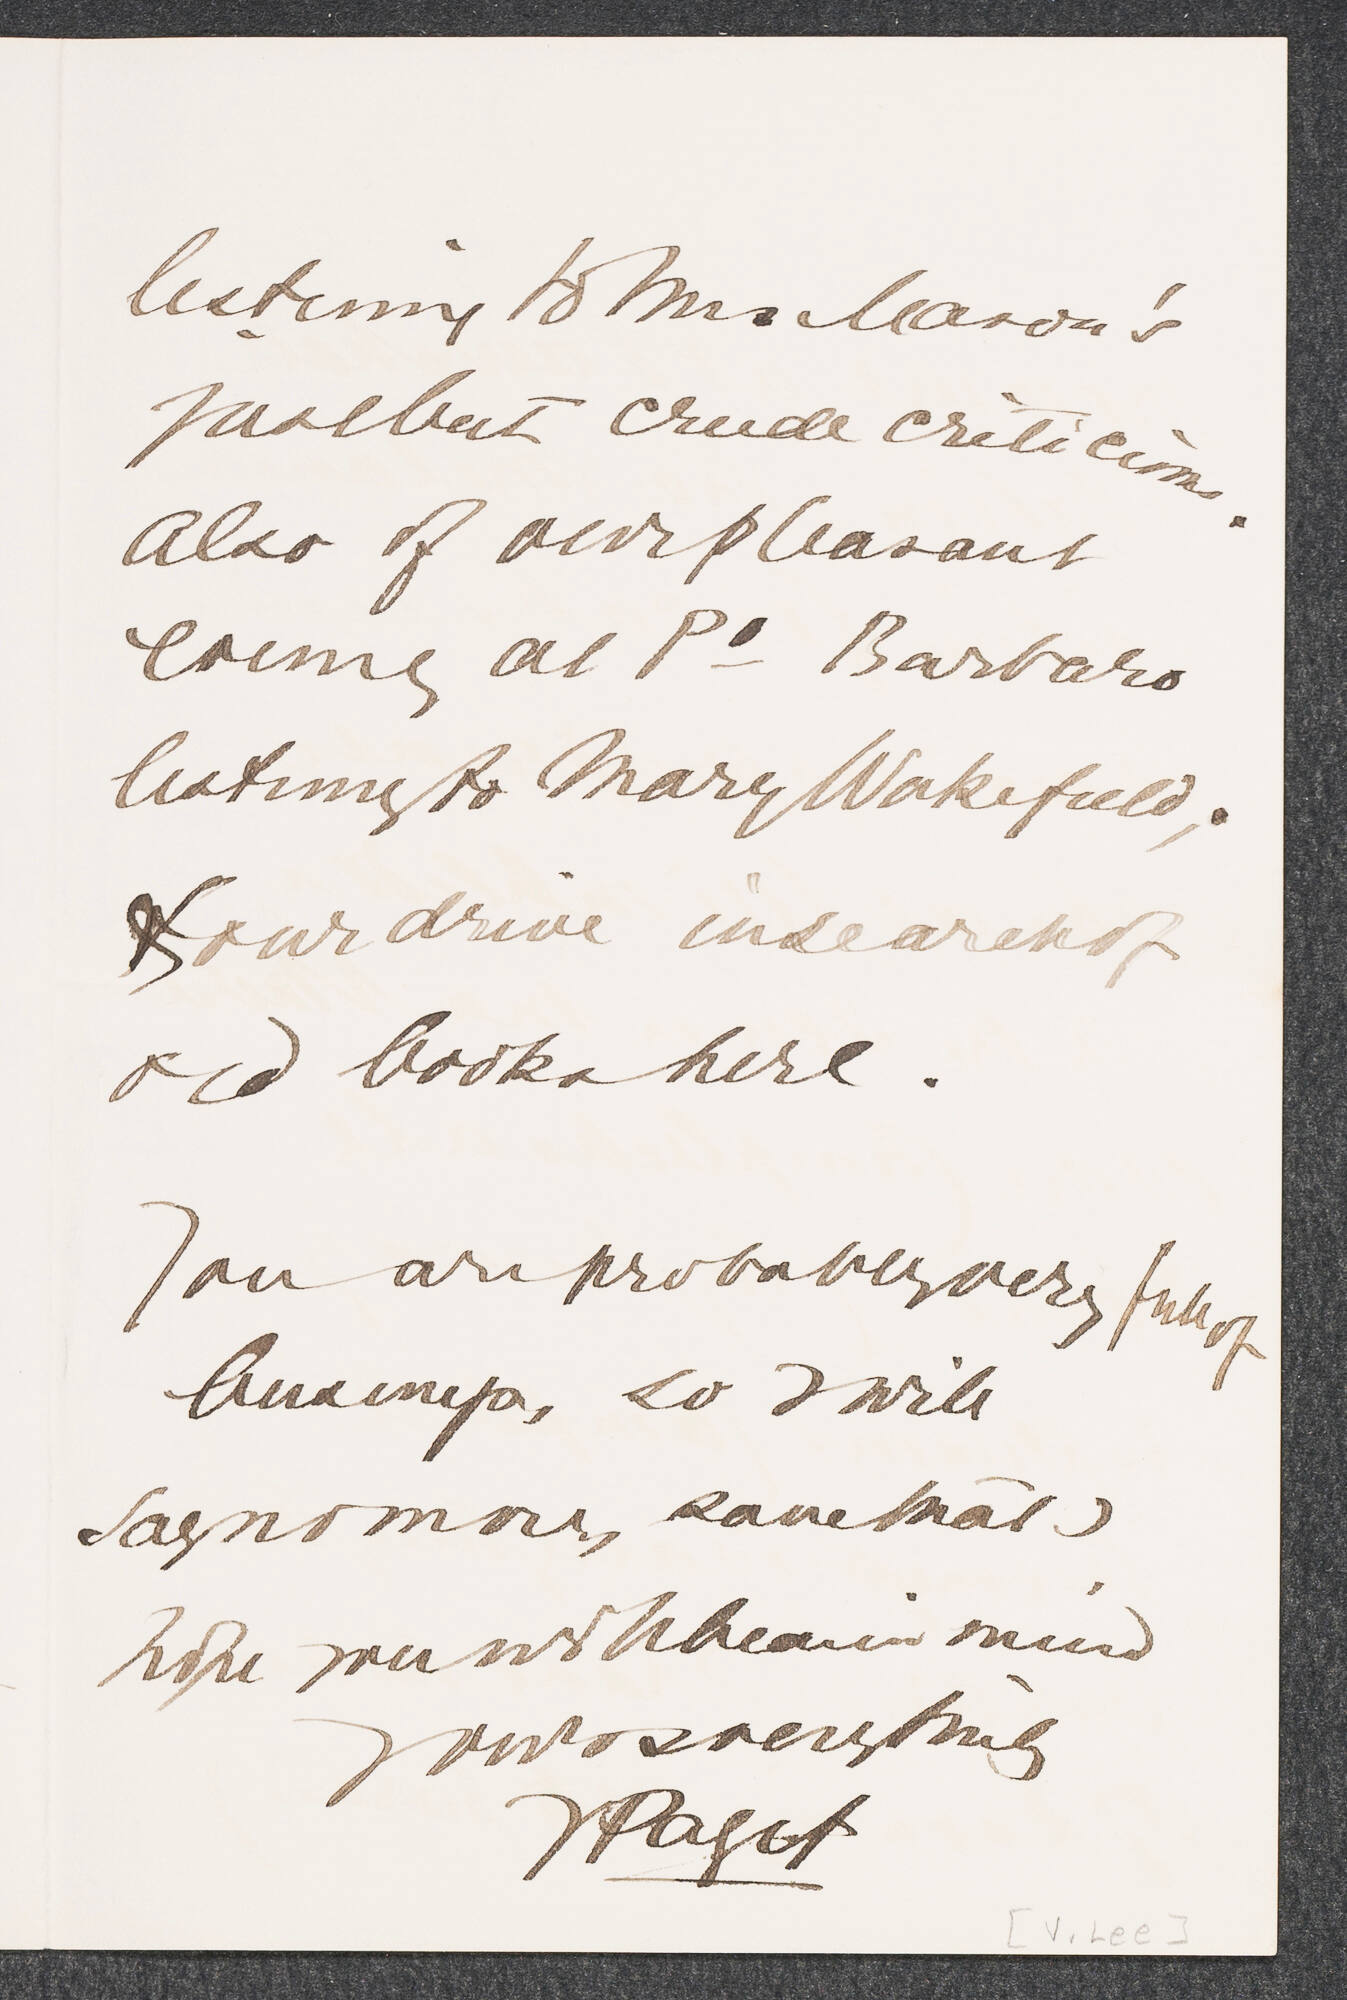 listening to Mrs. Mason's
just but crude criticisms.
Also of our pleasant
evening at Po Barbaro
listening to Mary Wakefield,
& our drive in search of
old books here.
You are probably very full of
business, so I will
say no more, save that I
hope you will bear in mind
yours everything
V Paget
[V. Lee]